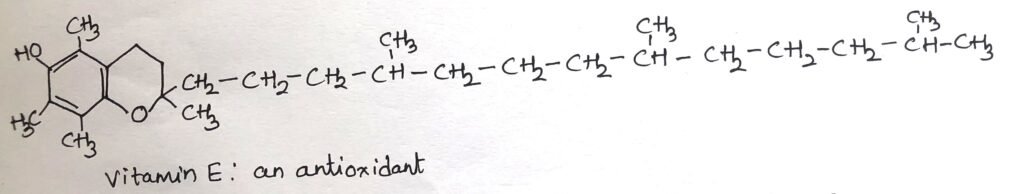 CH3 CH3 CH3 CH3
HO
CH2-CH2-CH2-CH-CH2-CH2-CH2-CH-CH2-CH2-CH2-CH-CH3
O CH3
H3C
CH3
Vitamin E: an antioxidant